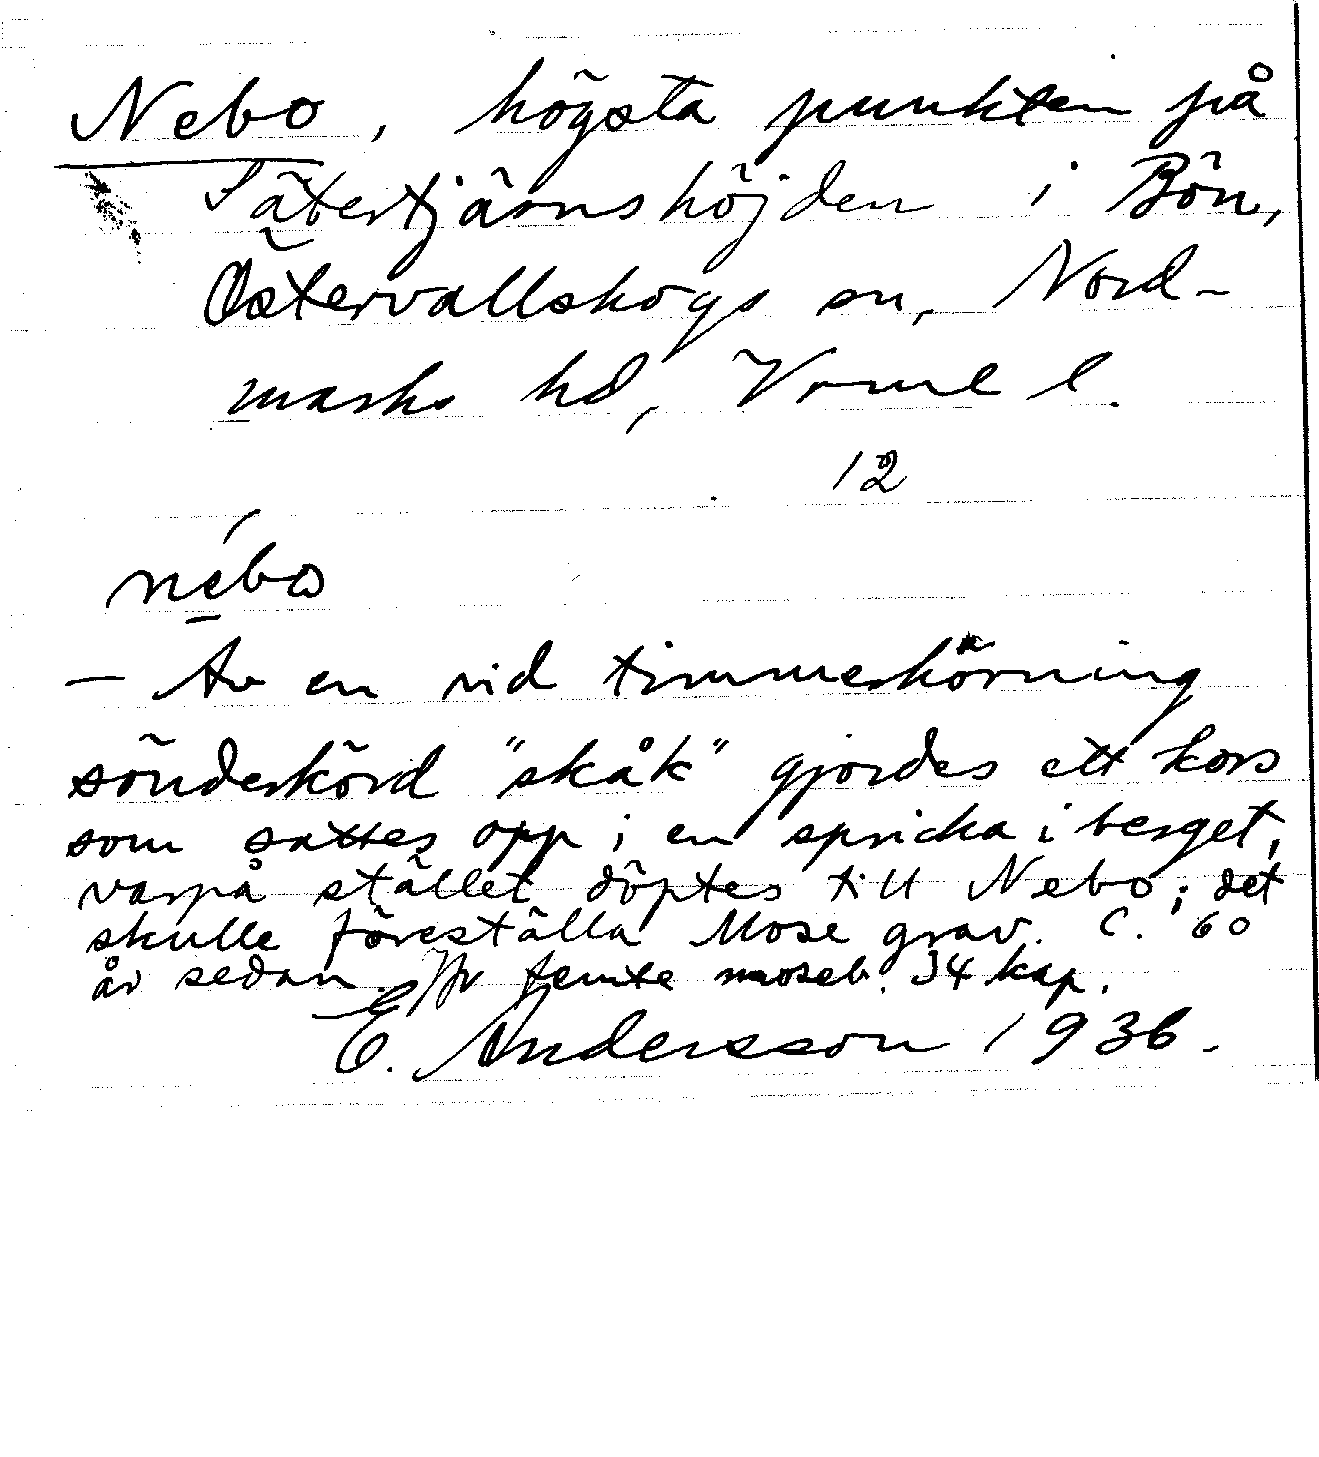 Nebo, högsta punkten på
Sätertjärnshöjden i Bön,
Östervallskogs sn, Nord-
marks hd, Vrml l.
12
nébo
– Av en vid timmerkörning
sönderkörd "skåk" gjordes ett kors
som sattes opp i en spricka i berget,
varpå stället döptes till Nebo; det
skulle föreställa Mose grav. C. 60
år sedan. Jfr femte moseb. 34 kap.
E. Andersson 1936.